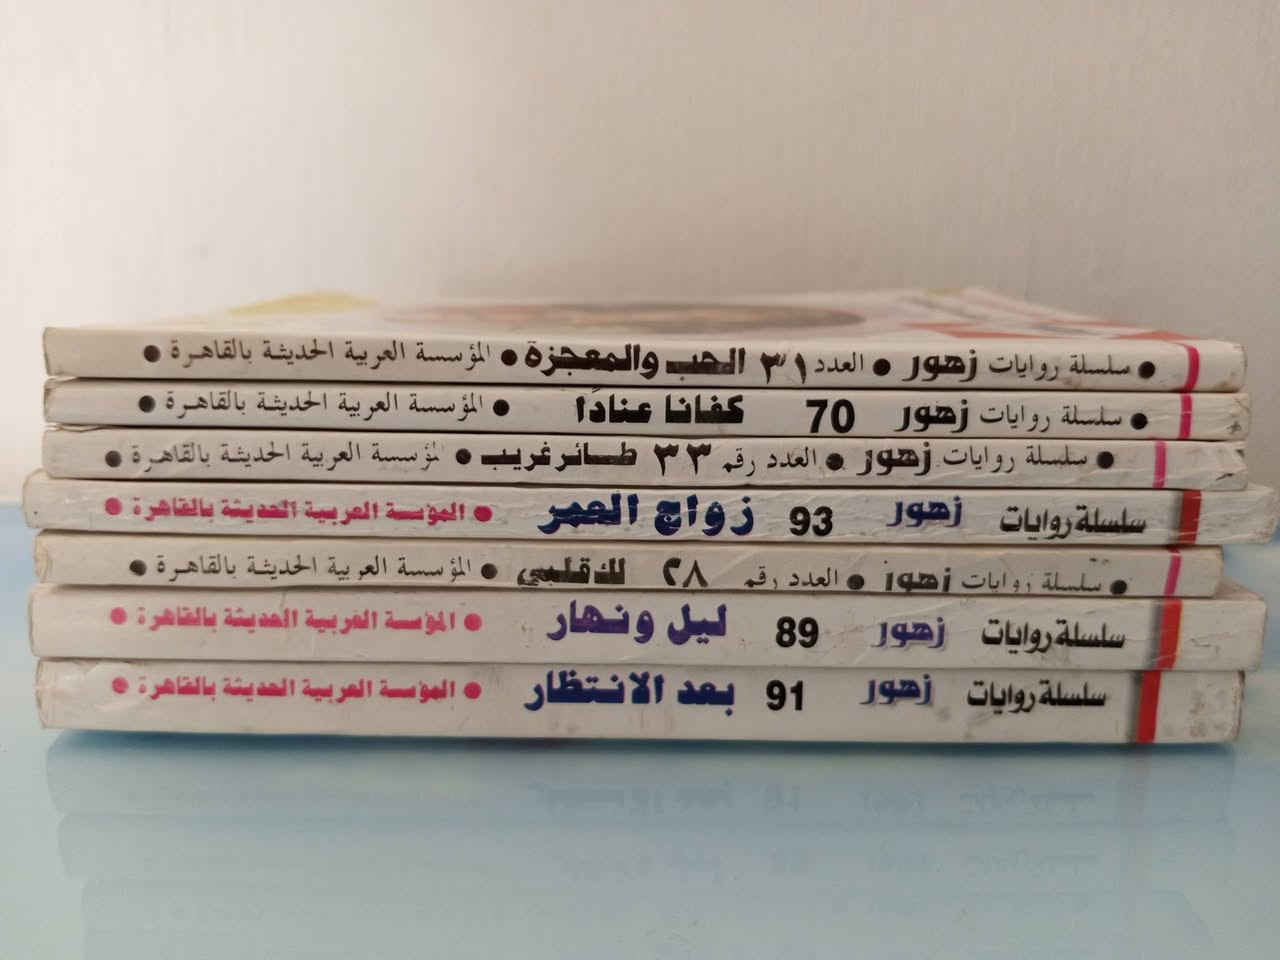 ● سلسلة روايات زهور ● العدد ٣١ الحب والمعجزة ● المؤسسة العربية الحديثة بالقاهرة ●
● سلسلة روايات زهور 70 كفانا عنادًا ● المؤسسة العربية الحديثة بالقاهرة ●
● سلسلة روايات زهور ● العدد رقم ٣٣ طائر غريب ● المؤسسة العربية الحديثة بالقاهرة ●
سلسلة روايات زهور 93 زواج العمر ● المؤسسة العربية الحديثة بالقاهرة ●
● سلسلة روايات زهور ● العدد رقم ٢٨ لك قلبي ● المؤسسة العربية الحديثة بالقاهرة ●
سلسلة روايات زهور 89 ليل ونهار ● المؤسسة العربية الحديثة بالقاهرة ●
سلسلة روايات زهور 91 بعد الانتظار ● المؤسسة العربية الحديثة بالقاهرة ●